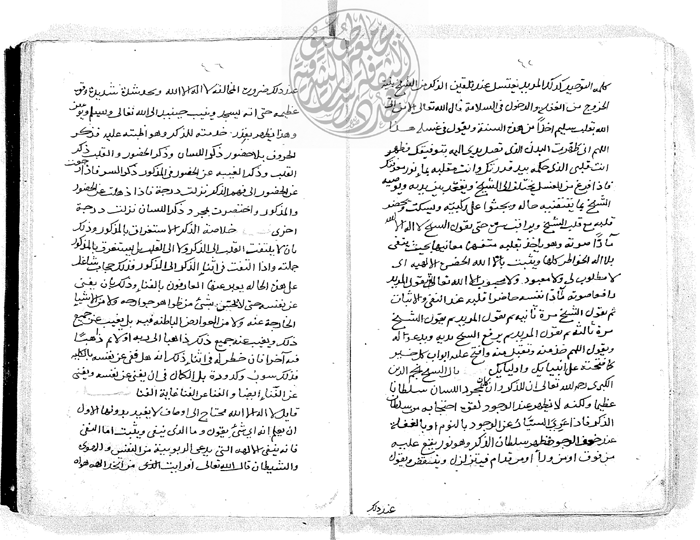 كلمة التوحيد كذلك المريد يغتسل عند تلقين الذكر من الشيخ
الخروج من الغش والدخول في السلامة قال الله تعالى الا من اتى
الله بقلب سليم اخذا من هذه السنة ويقول في غسله هذا
اللهم اني طهرت البدن الذي تصل يدي اليه بتوفيقك فطهر
انت قلبي الذي حكمه بيد قدرتك وانت مقلبه بما نور
فاذا فرغ من الغسل يدخل الى الشيخ ويقعد بين يديه ويوصيه
الشيخ بما يقتضيه حاله ويجثوا على ركبتيه ويسكت ويحضر
قلبه مع قلب الشيخ ويراقب حتى يقول الشيخ لا اله الا الله
مادا صوته وهو ياخذ بقلبه متفهما معانيها بحيث ينفي
بلا اله الخواطر كلها ويثبت بالا الله الحضرة الالهية اي
لا مطلوب لي ولا معبود ولا محبوب الا الله تعالى ثم يقول المريد
رافعا صوته مادا نفسه حاضرا قلبه عند النفي والاثبات
ثم يقول الشيخ مرة ثانية ثم يقول المريد ثم يقول الشيخ
مرة ثالثة ثم يقول المريد ثم يرفع الشيخ يديه ويدعو له
ويقول اللهم خذ منه وتقبل منه وافتح عليه ابواب كل خير
كما فتحته على انبيائك واوليائك قال الشيخ نجم الدين
الكبرى رحمه الله تعالى ان للذكر باللسان سلطانا
عظيما ولكنه لا يظهر عند الوجود لقوة احتجابه من سلطان
الذكر فاذا الستار عند الوجود بالنوم او بالغفلة
عند الوجود فظهر سلطان الذكر وهو نور يقع عليه
من فوق او من ورآ او من قدام فيتزلزل ويقول
عند ذلك
عند ذلك ضرورة لا اله الا الله ويجد شدة شديدة وقوة
عظيمة حتى انه يسجد ويغيب حينئذ الى الله تعالى ويسلم
وهذا يظهر بقدر خدمته للذكر ومواظبته عليه فذكر
الحروف بلا حضور ذكر اللسان وذكر الحضور في القلب ذكر
القلب وذكر الغيبة عن الحضور في المذكور ذكر السر فاذا
عن الحضور الى فهم الذكر نزلت درجة فاذا ذهلت عن الحضور
والمذكور واقتصرت بمجرد ذكر اللسان نزلت درجة
اخرى خلاصة الذكر الاستغراق بالمذكور وذلك
بان لا يلتفت القلب الى الذكر ولا الى القلب بل يستغرق بالمذكور
جملته واذا التفت في اثنا الذكر الى الذكر فذلك حجاب شاغل
عن هذا الحالة يعبر عنها العارفون بالفنا وذلك بان يفنى
عن نفسه حتى لا يحس بشئ من ظواهر جوارحه ولا من الاشيا
الخارجة عنه ولا من العوارض الباطنة فيه بل يغيب عن جميع
ذلك ويغيب عنه جميع ذلك ذاهبا الى ربه اولا ثم ذاهبا
فيه آخرا فان خطر له في اثناء ذلك انه قد فنى عن نفسه بالكلية
فذلك شوب وكدورة بل الكمال في ان يفنى عن نفسه ويفنى
عن الفناء ايضا والفنا عن الفنا غاية الفنا
قايل لا اله الا الله محتاج الى اوصاف لا يفيد بدونها الاول
ان يعلم انه اي شئ يقول وما الذي ينفي ويثبت اما النفي
فانه ينفي الالهة التي يدعى الربوبية من النفس والهوى
والشيطان قال الله تعالى افرايت من اتخذ الهه هواه